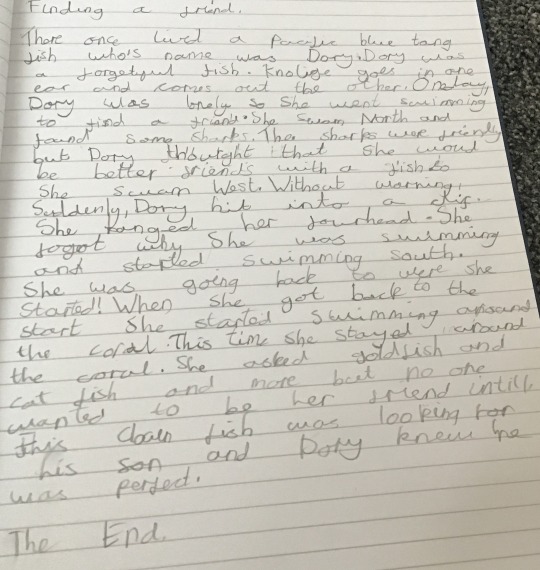 Finding a friend.
There once lived a pacific blue tang
fish who's name was Dory. Dory was
a forgetful fish. Enolige goes in one
ear and comes out the other. One day,
Dory was lonely so she went swimming
to find a friend. She swam North and
found some sharks. The sharks were friendly
but Dory thbutght that she woud
be better friends with a fish so
She swam West. Without warning,
Suddenly, Dory hit into a clif.
She banged her fourhead. She
forgot why She was swimming
and started swimming south.
She was going back to were she
started! When she got back to the
start She started swimming around
the coral. This time she stayed around
the coral. She asked goldfish and
cat fish and more but no one
wanted to be her friend intill
this clown fish was looking for
his son and Dory knew he
was perfect.
The End.